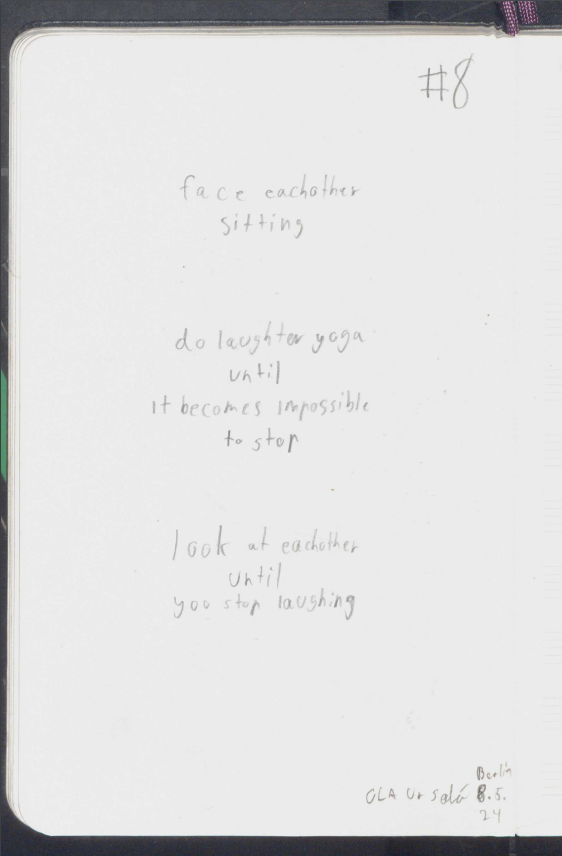 #8
face eachother
sitting
do laughter yoga
until
it becomes impossible
to stop
look at eachother
until
you stop laughing
Berlin
OLA Ur Saló 8.5.
24